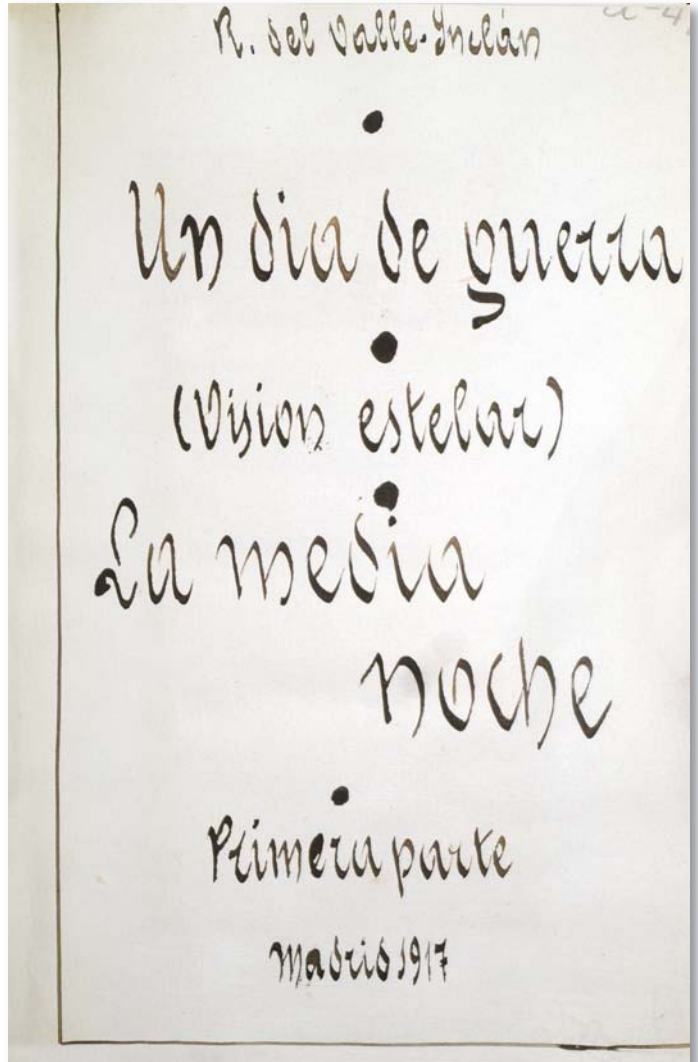 R. del Valle-Inclán
Un dia de guerra
(Vision estelar)
La media
noche
Primera parte
Madrid 1917